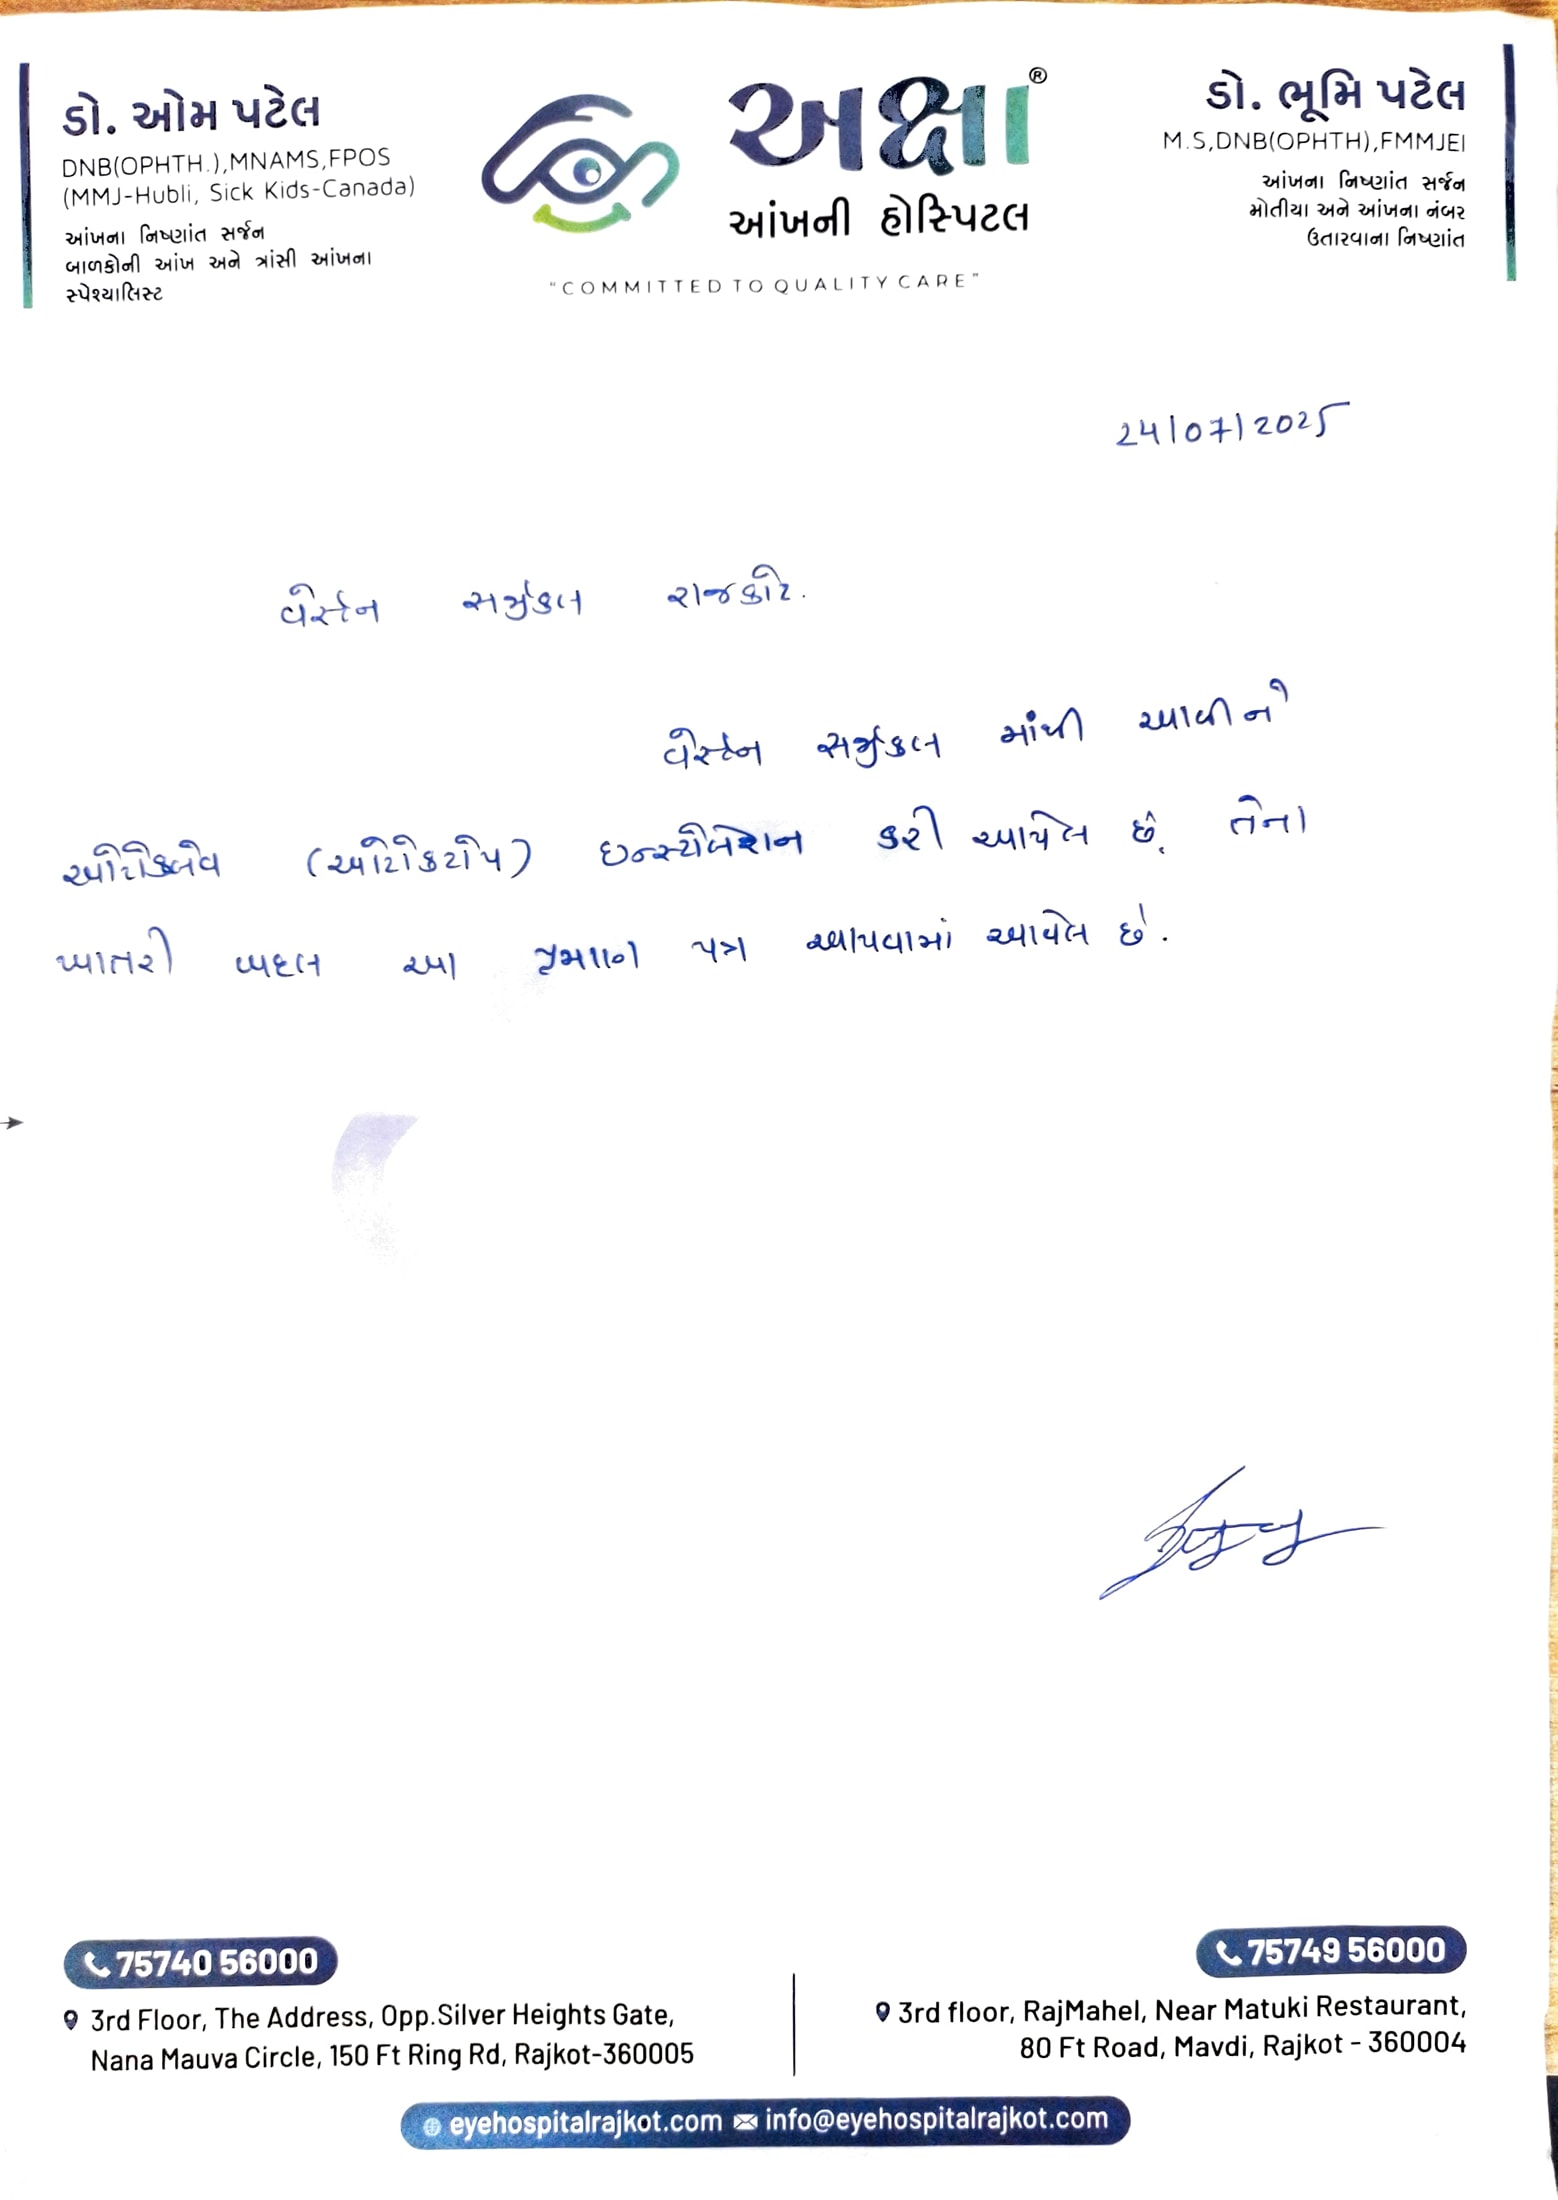 ડો. ઓમ પટેલ
DNB(OPHTH.),MNAMS,FPOS
(MMJ-Hubli, Sick Kids-Canada)
આંખના નિષ્ણાંત સર્જન
બાળકોની આંખ અને ત્રાંસી આંખના
સ્પેશ્યાલિસ્ટ
અક્ષા®
આંખની હોસ્પિટલ
"COMMITTED TO QUALITY CARE"
ડો. ભૂમિ પટેલ
M.S,DNB(OPHTH),FMMJEI
આંખના નિષ્ણાંત સર્જન
મોતીયા અને આંખના નંબર
ઉતારવાના નિષ્ણાંત
24/07/2025
વેર્સ્ટન સર્જીકલ રાજકોટ.
વેર્સ્ટન સર્જીકલ માંથી આવીને
ઓટોકલેવ (ઓટોકટોપ) ઇન્સ્ટોલેશન કરી આપેલ છે. તેના
ખાતરી બદલ આ પ્રમાણ પત્ર આપવામાં આવેલ છે.
75740 56000
3rd Floor, The Address, Opp.Silver Heights Gate,
Nana Mauva Circle, 150 Ft Ring Rd, Rajkot-360005
75749 56000
3rd floor, RajMahel, Near Matuki Restaurant,
80 Ft Road, Mavdi, Rajkot - 360004
eyehospitalrajkot.com info@eyehospitalrajkot.com